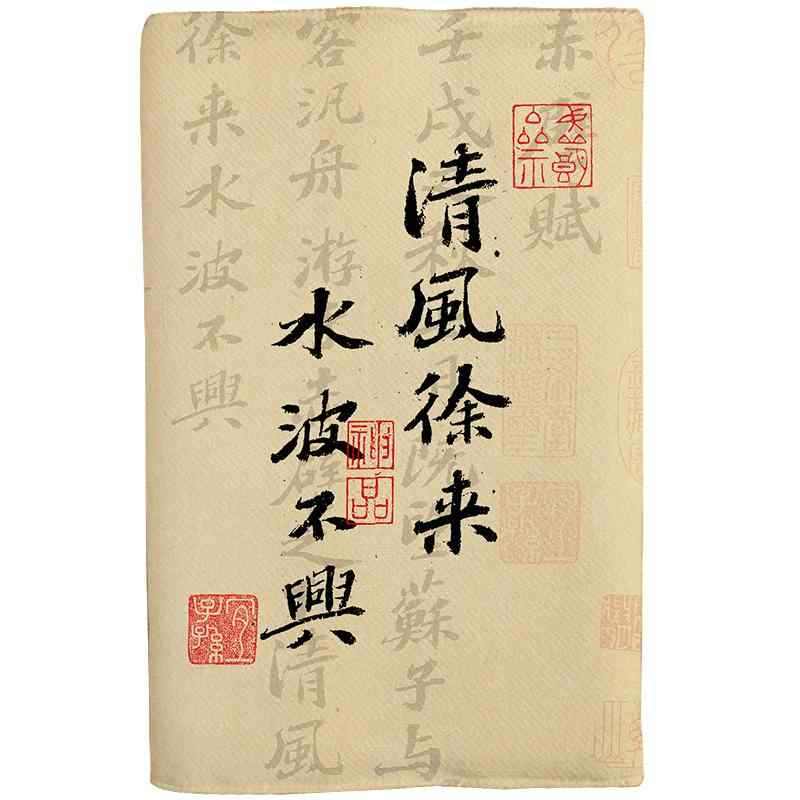 清風徐来
水波不興
赤壁賦
壬戌 秋 月既望蘇子与
客汎舟游 赤壁之 清風
徐来水波不興
神品
宜子孫